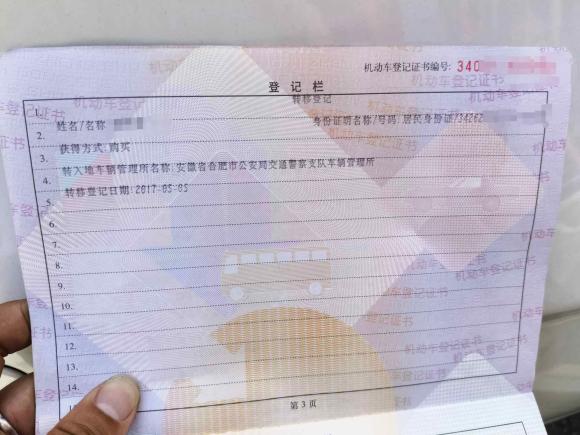 机动车登记证书编号: 340
登记栏
转移登记
1.
姓名/名称 身份证明名称/号码:居民身份证/34262
2.
获得方式:购买
3.
转入地车辆管理所名称:安徽省合肥市公安局交通警察支队车辆管理所
4.
转移登记日期:2017-05-05
5.
6.
7.
8.
9.
10.
11.
12.
13.
14.
第 3 页